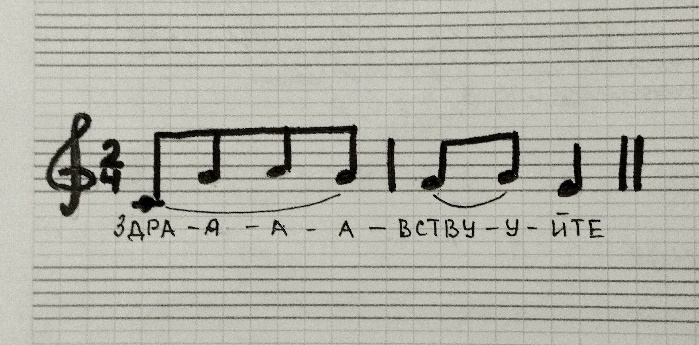 2
4
ЗДРА - А - А - А - ВСТВУ - У - ЙТЕ